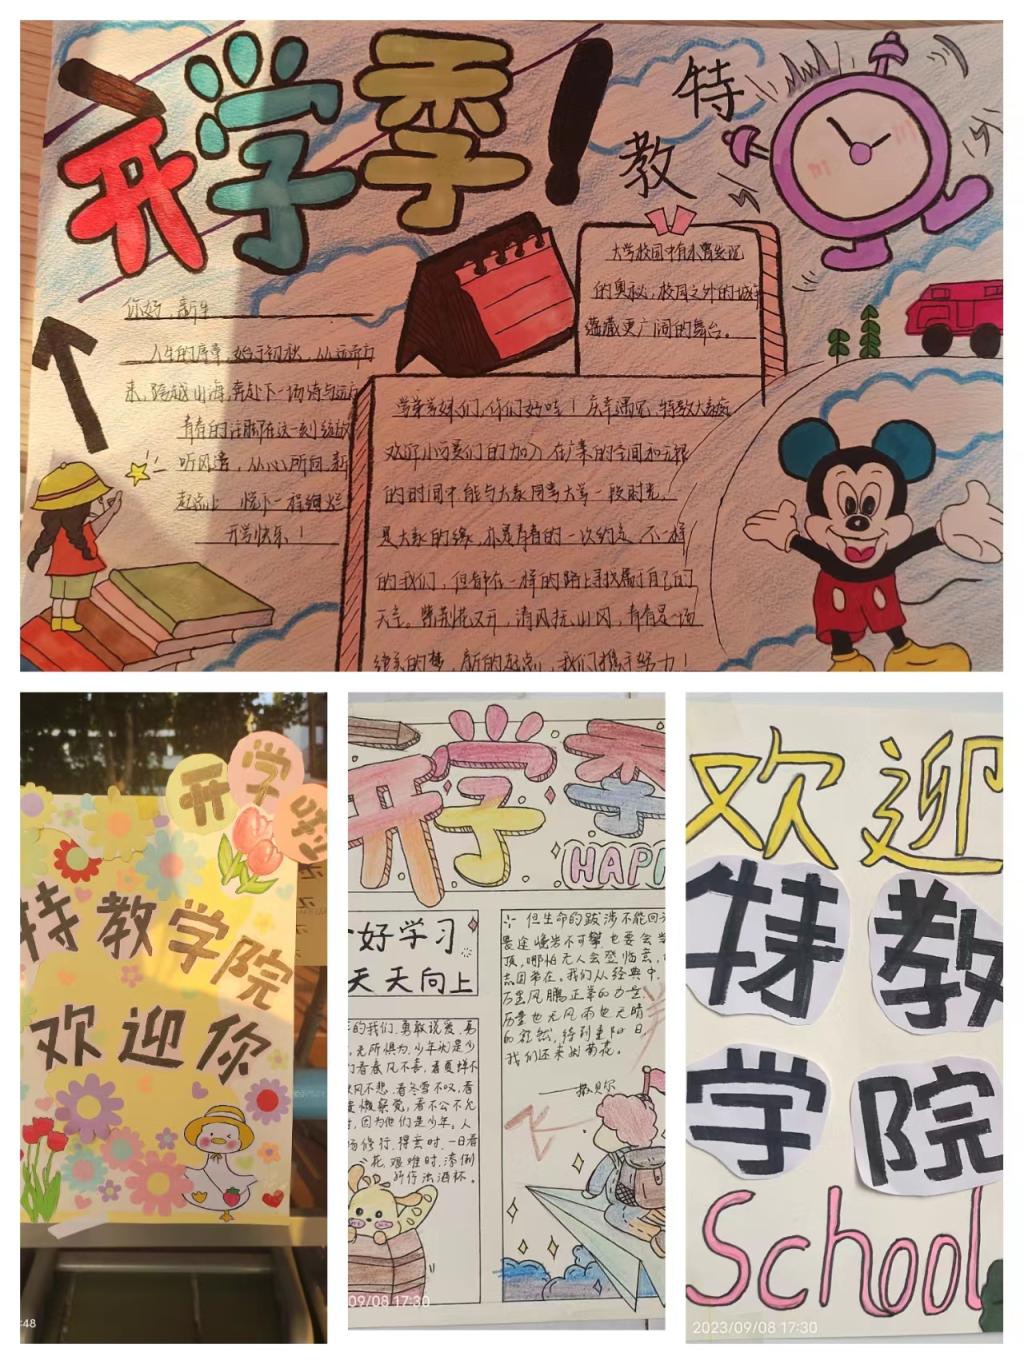 开学季！
特
教
你好，新生
人生的序章，始于初秋，从远方
来，跨越山海，奔赴下一场诗与远方
青春的注脚在这一刻绽放
听风遇，从心所向，新
起点
开学快乐！
大学校园中有未曾发现
的奥秘，校园之外的城市
蕴藏更广阔的舞台。
学弟学妹们，你们好哇！庆幸遇见，特教大家庭
欢迎小可爱们的加入，在广袤的空间和无限
的时间中，能与大家同享大学一段时光，
是大家的缘，亦是青春的一次约定，不一样
的我们，但都在一样的路上寻找属于自己的
天空。紫荆花又开，清风抚山冈，青春是一场
的梦，新的起点，我们携手努力！
开学啦
特教学院
欢迎你
开学季
HAPP
好学习
天天向上
但生命的跋涉不能回
是途 岩不可攀，也要会当
顶，哪怕无人会登临
志固常在。我们从经典中，
历墨风鹏正举的力量，
历墨也无风雨也无晴
的欣然，待到重阳日，
我们还来就菊花。
——撒贝尔
的我们，勇敢说爱，
，无所惧为，少年就是少
们看春风不喜，看夏蝉不
秋风不悲，看冬雪不叹，看
懒察觉，看不公不允
，因为他们是少年。人
场修行，得意时，一日看
花，艰难时，潦倒
新停浊酒杯。
09/08 17:30
欢迎
特教
学院
School
2023/09/08 17:30
:48